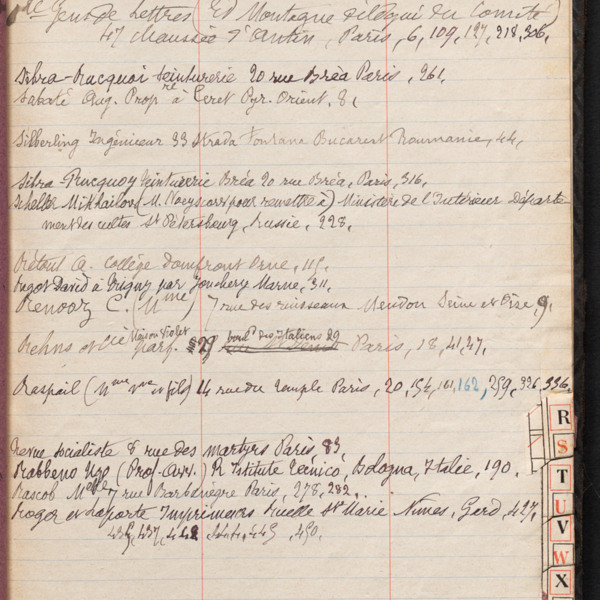 Gens de Lettres Ed Montagne délégué du Comité
47 Chaussée d'Antin, Paris, 6, 109, 127, 218, 306,
Sibra-Racquoi teinturerie 20 rue Bréa Paris, 261,
Sabaté Aug. Prop.re à Ceret Pyr. Orient. 8,
Silberling Ingénieur 33 Strada Fontana Bucarest Roumanie, 44,
Sibra Rucquoy teinturerie Bréa 20 rue Bréa, Paris, 316,
Scheller Mikhailow (M. pour remettre à) Ministère de l'Intérieur Départe
ment des cultes St Pétersbourg, Russie, 228,
Rétout A. Collège Domfront Orne, 115,
Rugot David à Trigny par Jonchery Marne, 311,
Renooz C. (Mme) 7 rue des ruisseaux Meudon Seine et Oise, 9,
Rehns et Cie Maison Violet parf. 29 boul.d des Italiens 29 Paris, 18, 41, 47,
Raspail (Mme Vve et fils) 14 rue du Temple Paris, 20, 154, 161, 162, 259, 326, 336,
Revue Socialiste 8 rue des martyrs Paris, 83,
Rabbeno Ugo (Prof. Avv.) R Istituto Tecnico, Bologna, Italie, 190,
Rascol Melle 7 rue Barbanègre Paris, 278, 282,
Roger et Laporte Imprimeurs Ruelle St Marie Nimes, Gard, 427,
435, 437, 442, 445, 450,
R
S
T
U
V
W
X